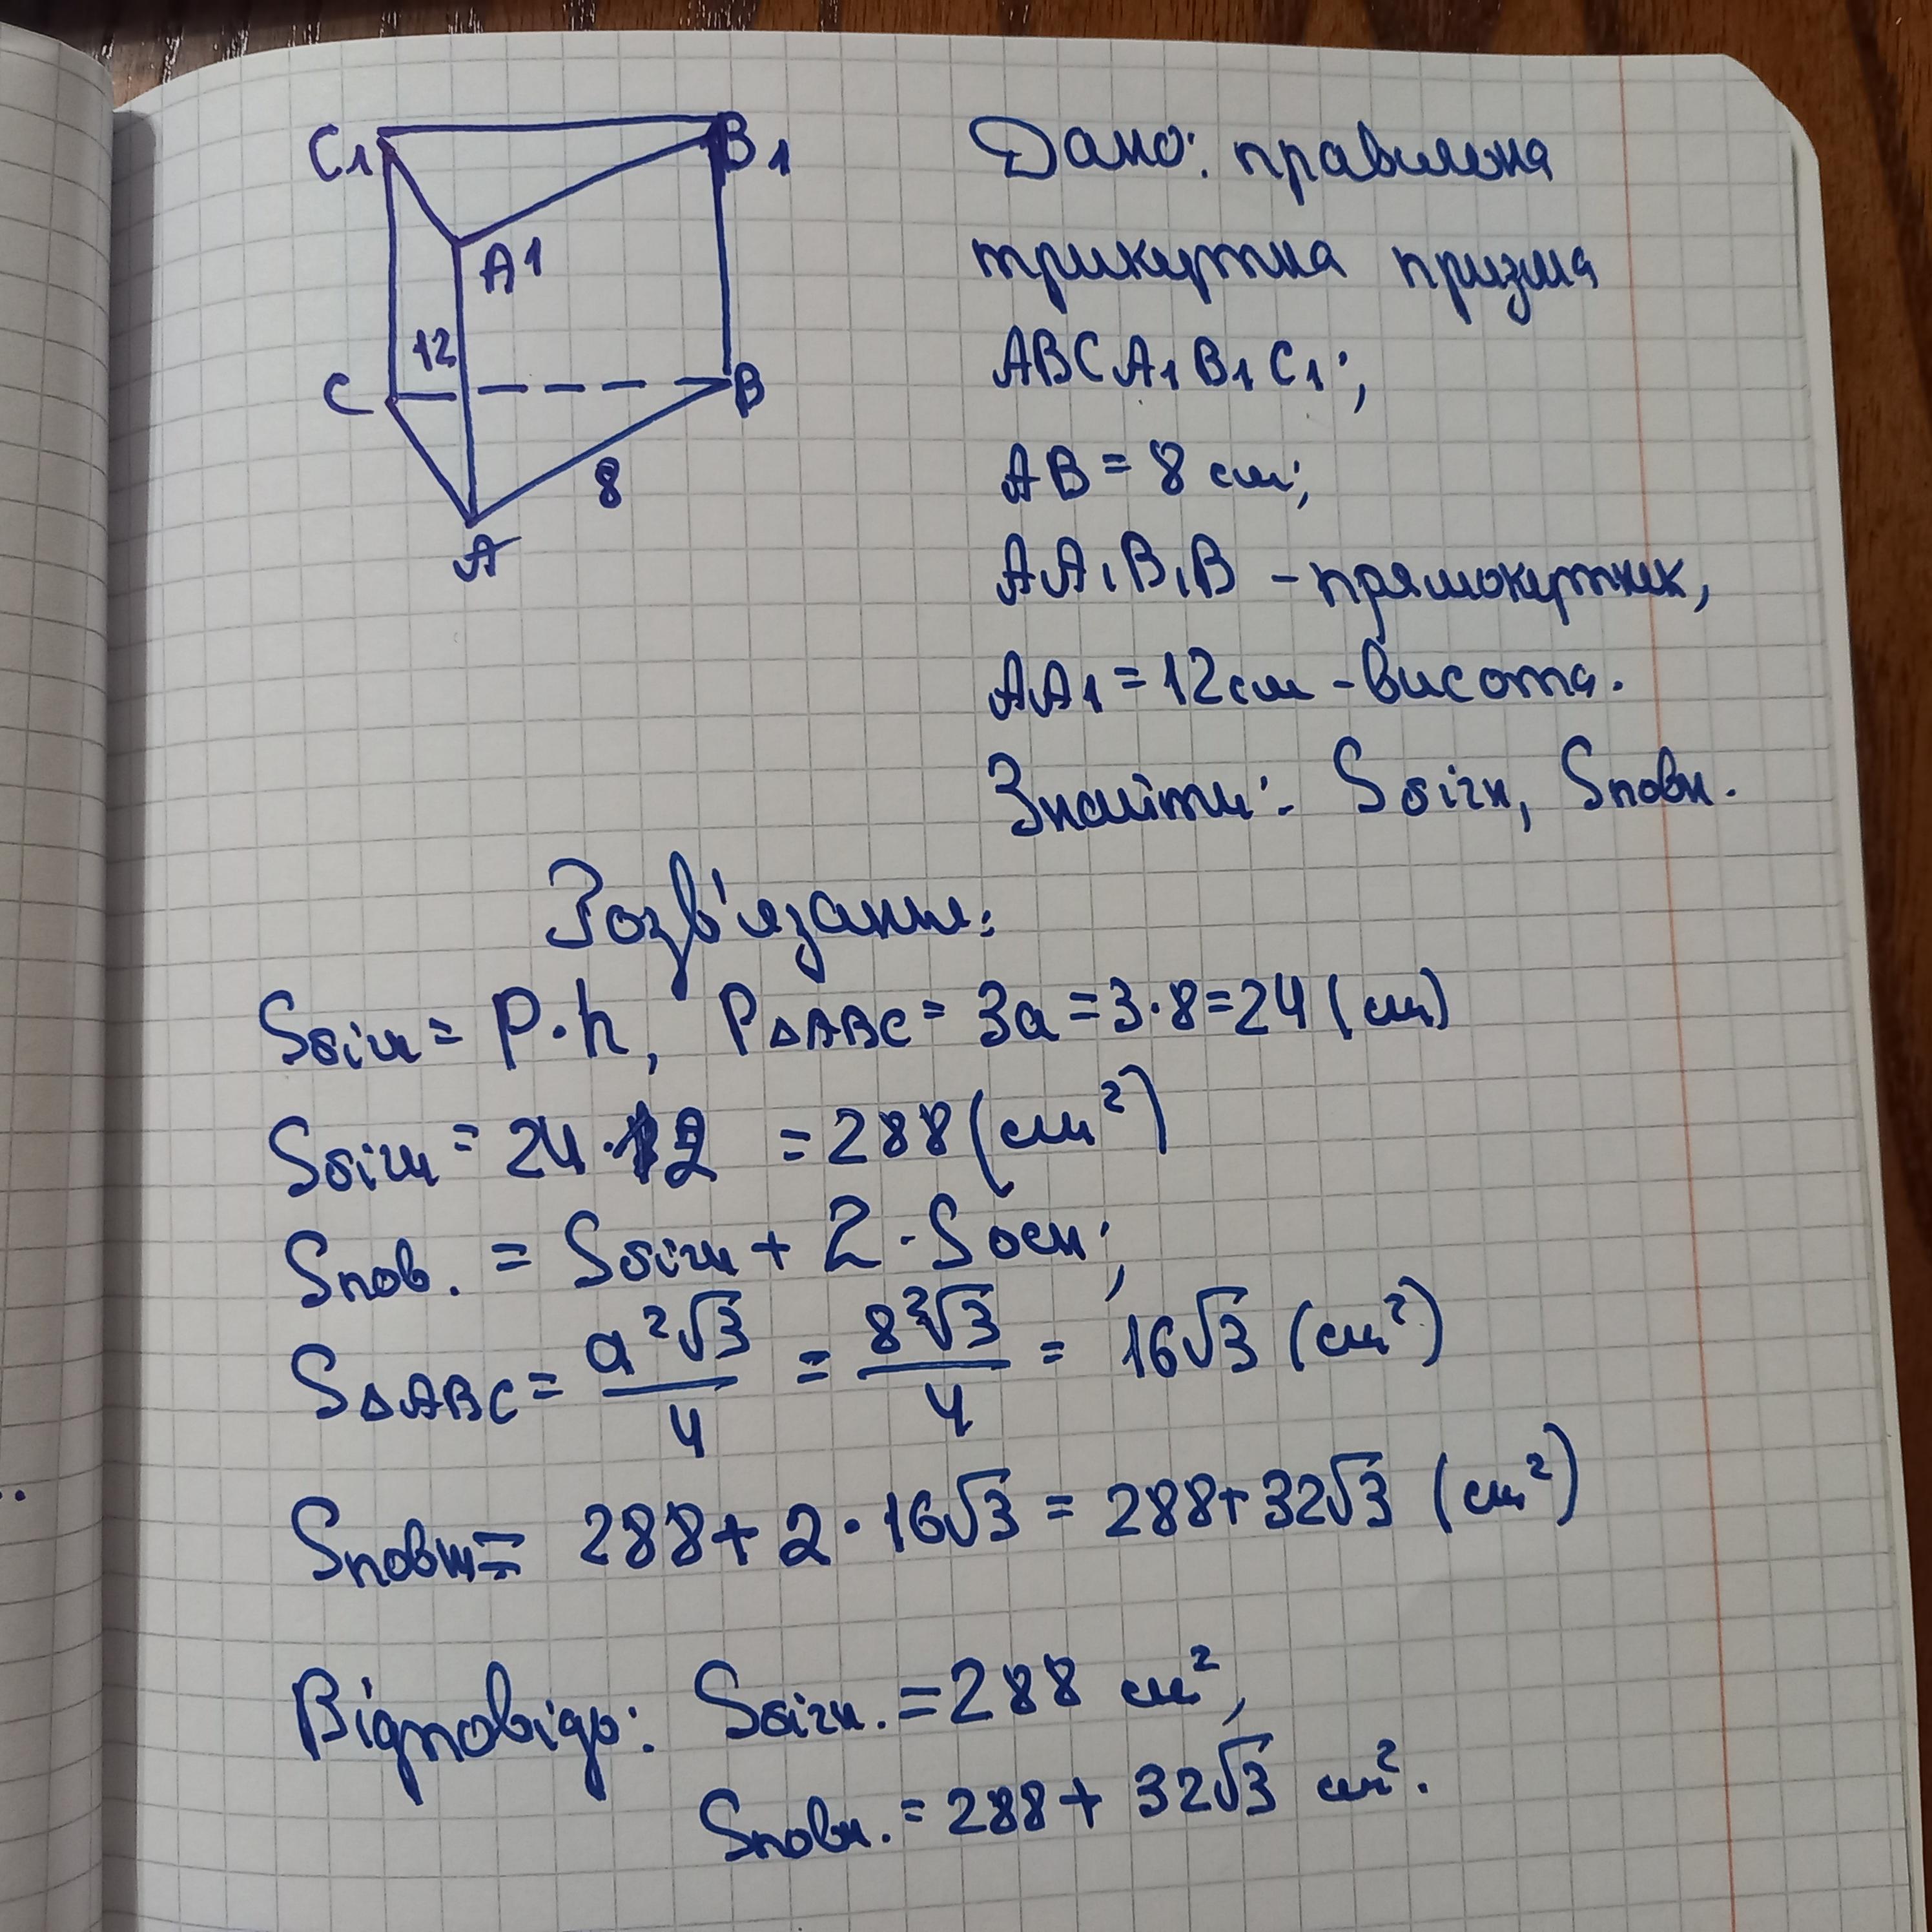 C₁
B₁
A1
12
C
B
8
A
Дано: правильна
трикутна призма
ABCA₁B₁C₁;
AB = 8 см;
AA₁B₁B – прямокутник,
AA₁ = 12см – висота.
Знайти: Sбічн, Sповн.
Розв'язання:
Sбічн = P·h, P△ABC = 3a = 3·8 = 24 (см)
Sбічн = 24·12 = 288 (см²)
Sпов. = Sбічн + 2·Sосн;
S△ABC = a²√3/4 = 8²√3/4 = 16√3 (см²)
Sповн = 288 + 2·16√3 = 288 + 32√3 (см²)
Відповідь: Sбічн. = 288 см²,
Sповн. = 288 + 32√3 см².